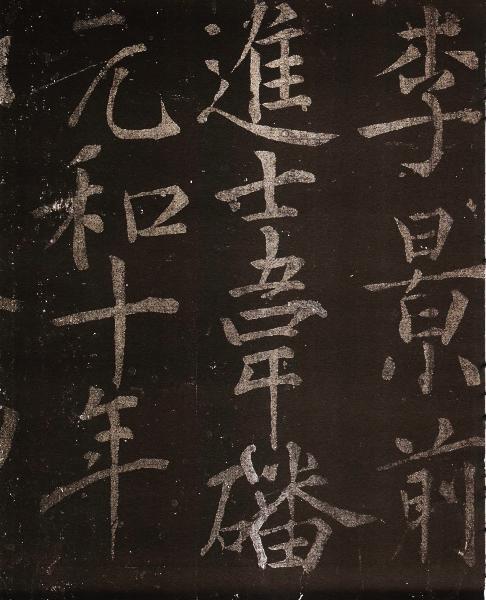 李景前
進士韋磻
元和十年